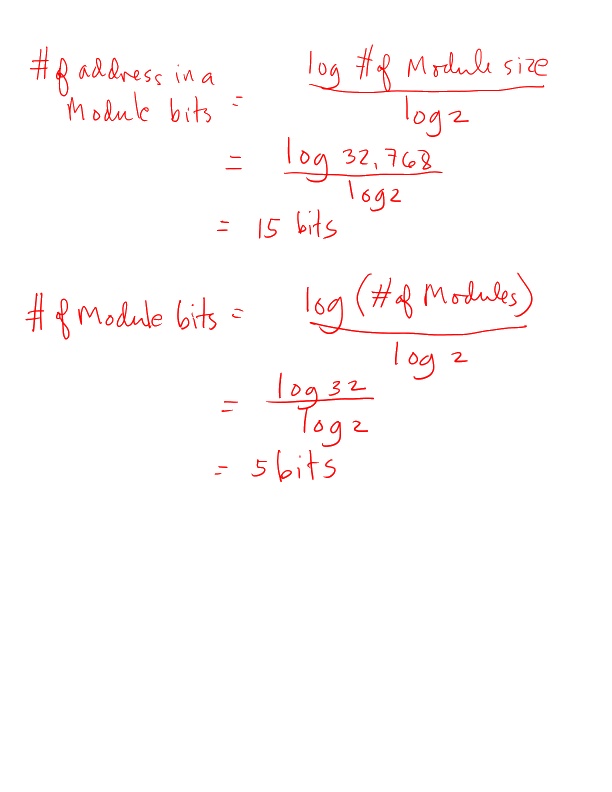 # of address in a Module bits = log # of Module size / log 2
= log 32,768 / log 2
= 15 bits
# of Module bits = log (# of Modules) / log 2
= log 32 / log 2
= 5 bits